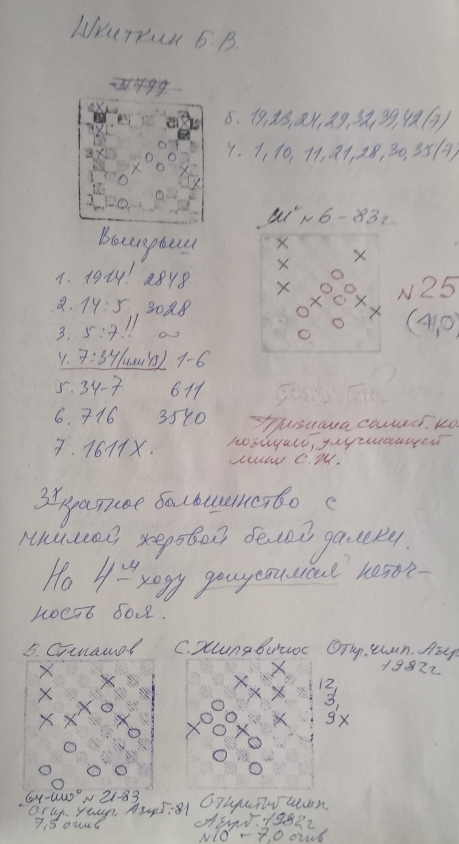 Шкиткин Б. В.
N799
Б. 19,23,24,29,32,39,42(7)
Ч. 1,10,11,21,28,30,35(7)
N6-83г
Выигрыш
N25
(41,0)
1. 1914! 2848
2. 14:5 3028
3. 5:7!! ~
4. 7:34(или 43) 1-6
5. 34-7 611
6. 716 3540
7. 1611X.
Признана самост. ко
позицией, улучшающей
мини С.Ж.
3х кратное большинство с
мнимой жертвой белой дамки.
На 4-м ходу допустимая неточ-
ность боя.
Б. Степанов
С. Жилявичюс
Откр. чемп. Азер
1982г
12,
3,
9x
64-100 N 21-83
Откр. чемп. Азерб. 81
7,5 очков
Открытый чемп.
Азерб. 1982г
N10 - 7,0 очков